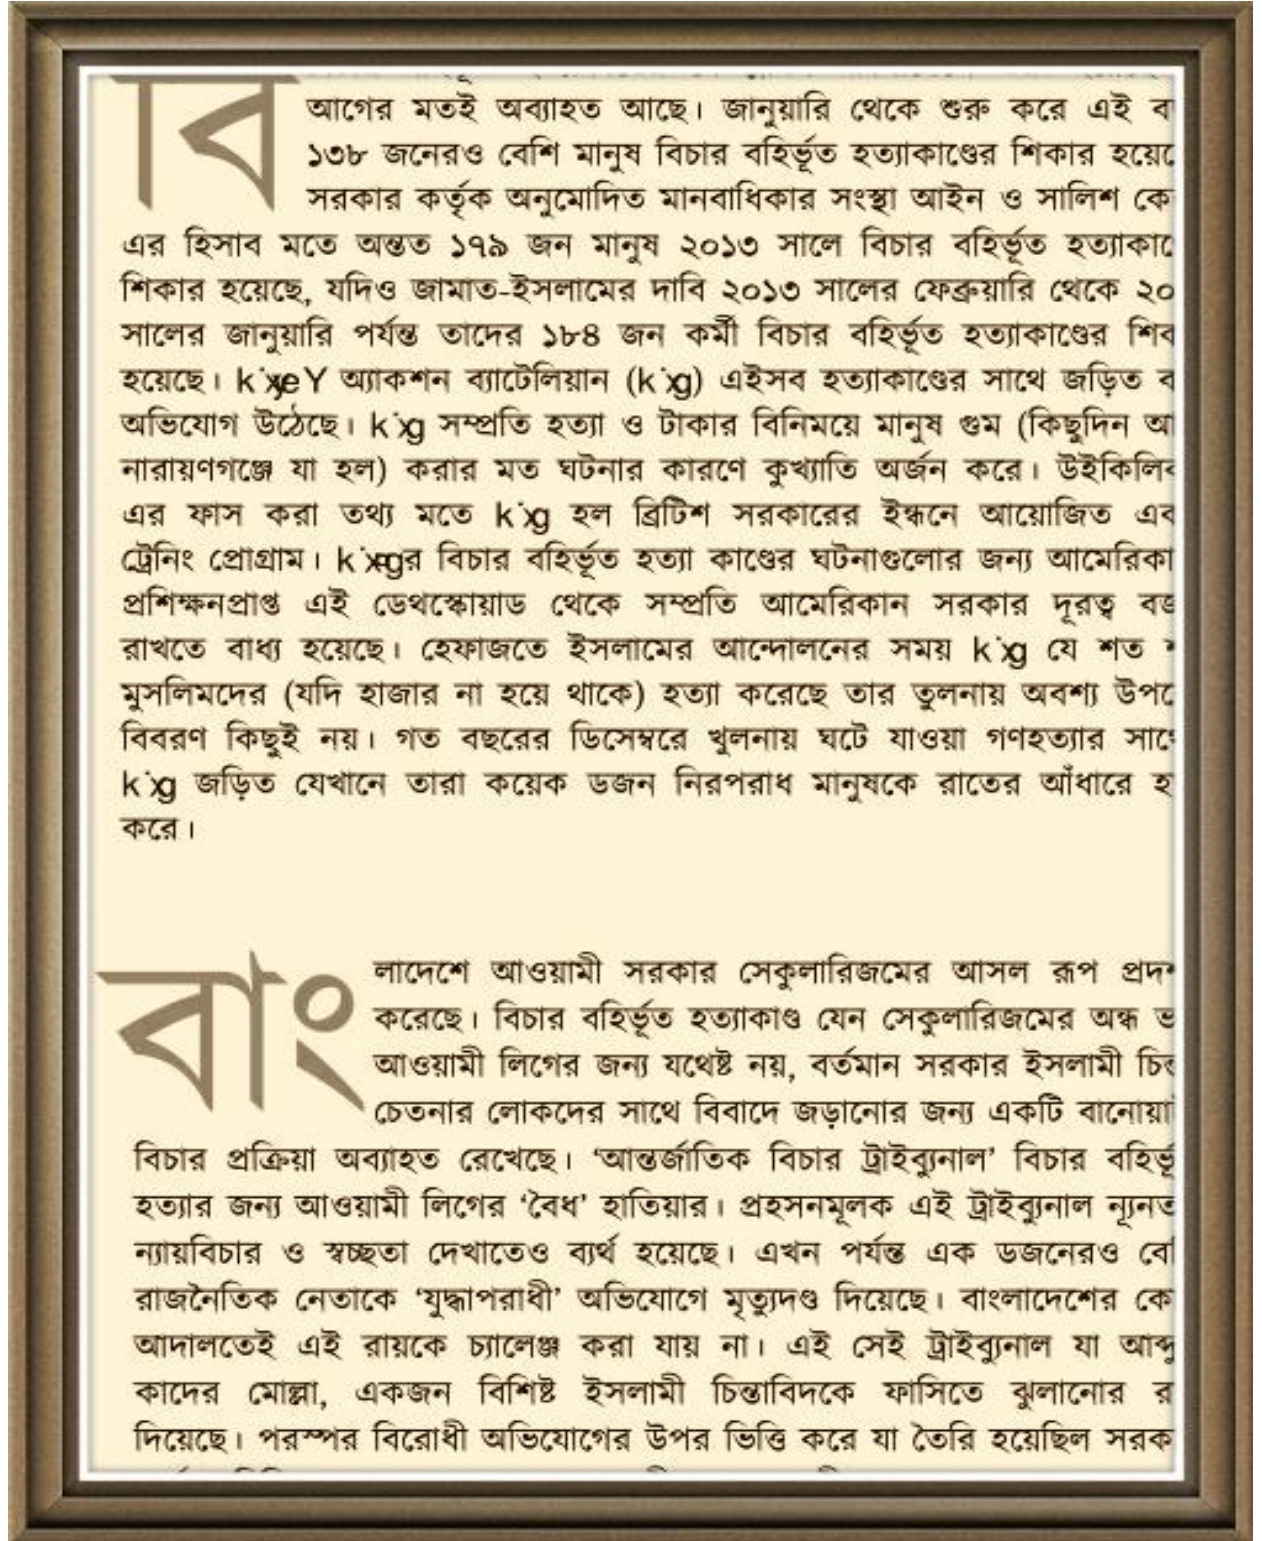 বি
আগের মতই অব্যাহত আছে। জানুয়ারি থেকে শুরু করে এই
১৩৮ জনেরও বেশি মানুষ বিচার বহির্ভূত হত্যাকাণ্ডের শিকার
সরকার কর্তৃক অনুমোদিত মানবাধিকার সংস্থা আইন ও সালিশ
এর হিসাব মতে অন্তত ১৭৯ জন মানুষ ২০১৩ সালে বিচার বহির্ভূত
শিকার হয়েছে, যদিও জামাত-ইসলামের দাবি ২০১৩ সালের ফেব্রুয়ারি থেকে ২০
সালের জানুয়ারি পর্যন্ত তাদের ১৮৪ জন কর্মী বিচার বহির্ভূত হত্যাকাণ্ডের
হয়েছে। অ্যাকশন ব্যাটেলিয়ান এইসব হত্যাকাণ্ডের সাথে জড়িত
অভিযোগ উঠেছে। সম্প্রতি হত্যা ও টাকার বিনিময়ে মানুষ গুম (কিছুদিন
নারায়ণগঞ্জে যা হল) করার মত ঘটনার কারণে কুখ্যাতি অর্জন করে।
এর ফাস করা তথ্য মতে হল ব্রিটিশ সরকারের ইন্ধনে আয়োজিত
ট্রেনিং প্রোগ্রাম। বিচার বহির্ভূত হত্যা কাণ্ডের ঘটনাগুলোর জন্য আমেরিকা
প্রশিক্ষনপ্রাপ্ত এই ডেথস্কোয়াড থেকে সম্প্রতি আমেরিকান সরকার দূরত্ব
রাখতে বাধ্য হয়েছে। হেফাজতে ইসলামের আন্দোলনের সময় যে শত
মুসলিমদের (যদি হাজার না হয়ে থাকে) হত্যা করেছে তার তুলনায় অবশ্য
বিবরণ কিছুই নয়। গত বছরের ডিসেম্বরে খুলনায় ঘটে যাওয়া গণহত্যার
জড়িত যেখানে তারা কয়েক ডজন নিরপরাধ মানুষকে রাতের আঁধারে
করে।
বাং
লাদেশে আওয়ামী সরকার সেকুলারিজমের আসল রূপ
করেছে। বিচার বহির্ভূত হত্যাকাণ্ড যেন সেকুলারিজমের অন্ধ
আওয়ামী লিগের জন্য যথেষ্ট নয়, বর্তমান সরকার ইসলামী
চেতনার লোকদের সাথে বিবাদে জড়ানোর জন্য একটি
বিচার প্রক্রিয়া অব্যাহত রেখেছে। ‘আন্তর্জাতিক বিচার ট্রাইব্যুনাল’ বিচার
হত্যার জন্য আওয়ামী লিগের ‘বৈধ’ হাতিয়ার। প্রহসনমূলক এই ট্রাইব্যুনাল
ন্যায়বিচার ও স্বচ্ছতা দেখাতেও ব্যর্থ হয়েছে। এখন পর্যন্ত এক ডজনেরও
রাজনৈতিক নেতাকে ‘যুদ্ধাপরাধী’ অভিযোগে মৃত্যুদণ্ড দিয়েছে। বাংলাদেশের
আদালতেই এই রায়কে চ্যালেঞ্জ করা যায় না। এই সেই ট্রাইব্যুনাল যা
কাদের মোল্লা, একজন বিশিষ্ট ইসলামী চিন্তাবিদকে ফাসিতে ঝুলানোর
দিয়েছে। পরস্পর বিরোধী অভিযোগের উপর ভিত্তি করে যা তৈরি হয়েছিল